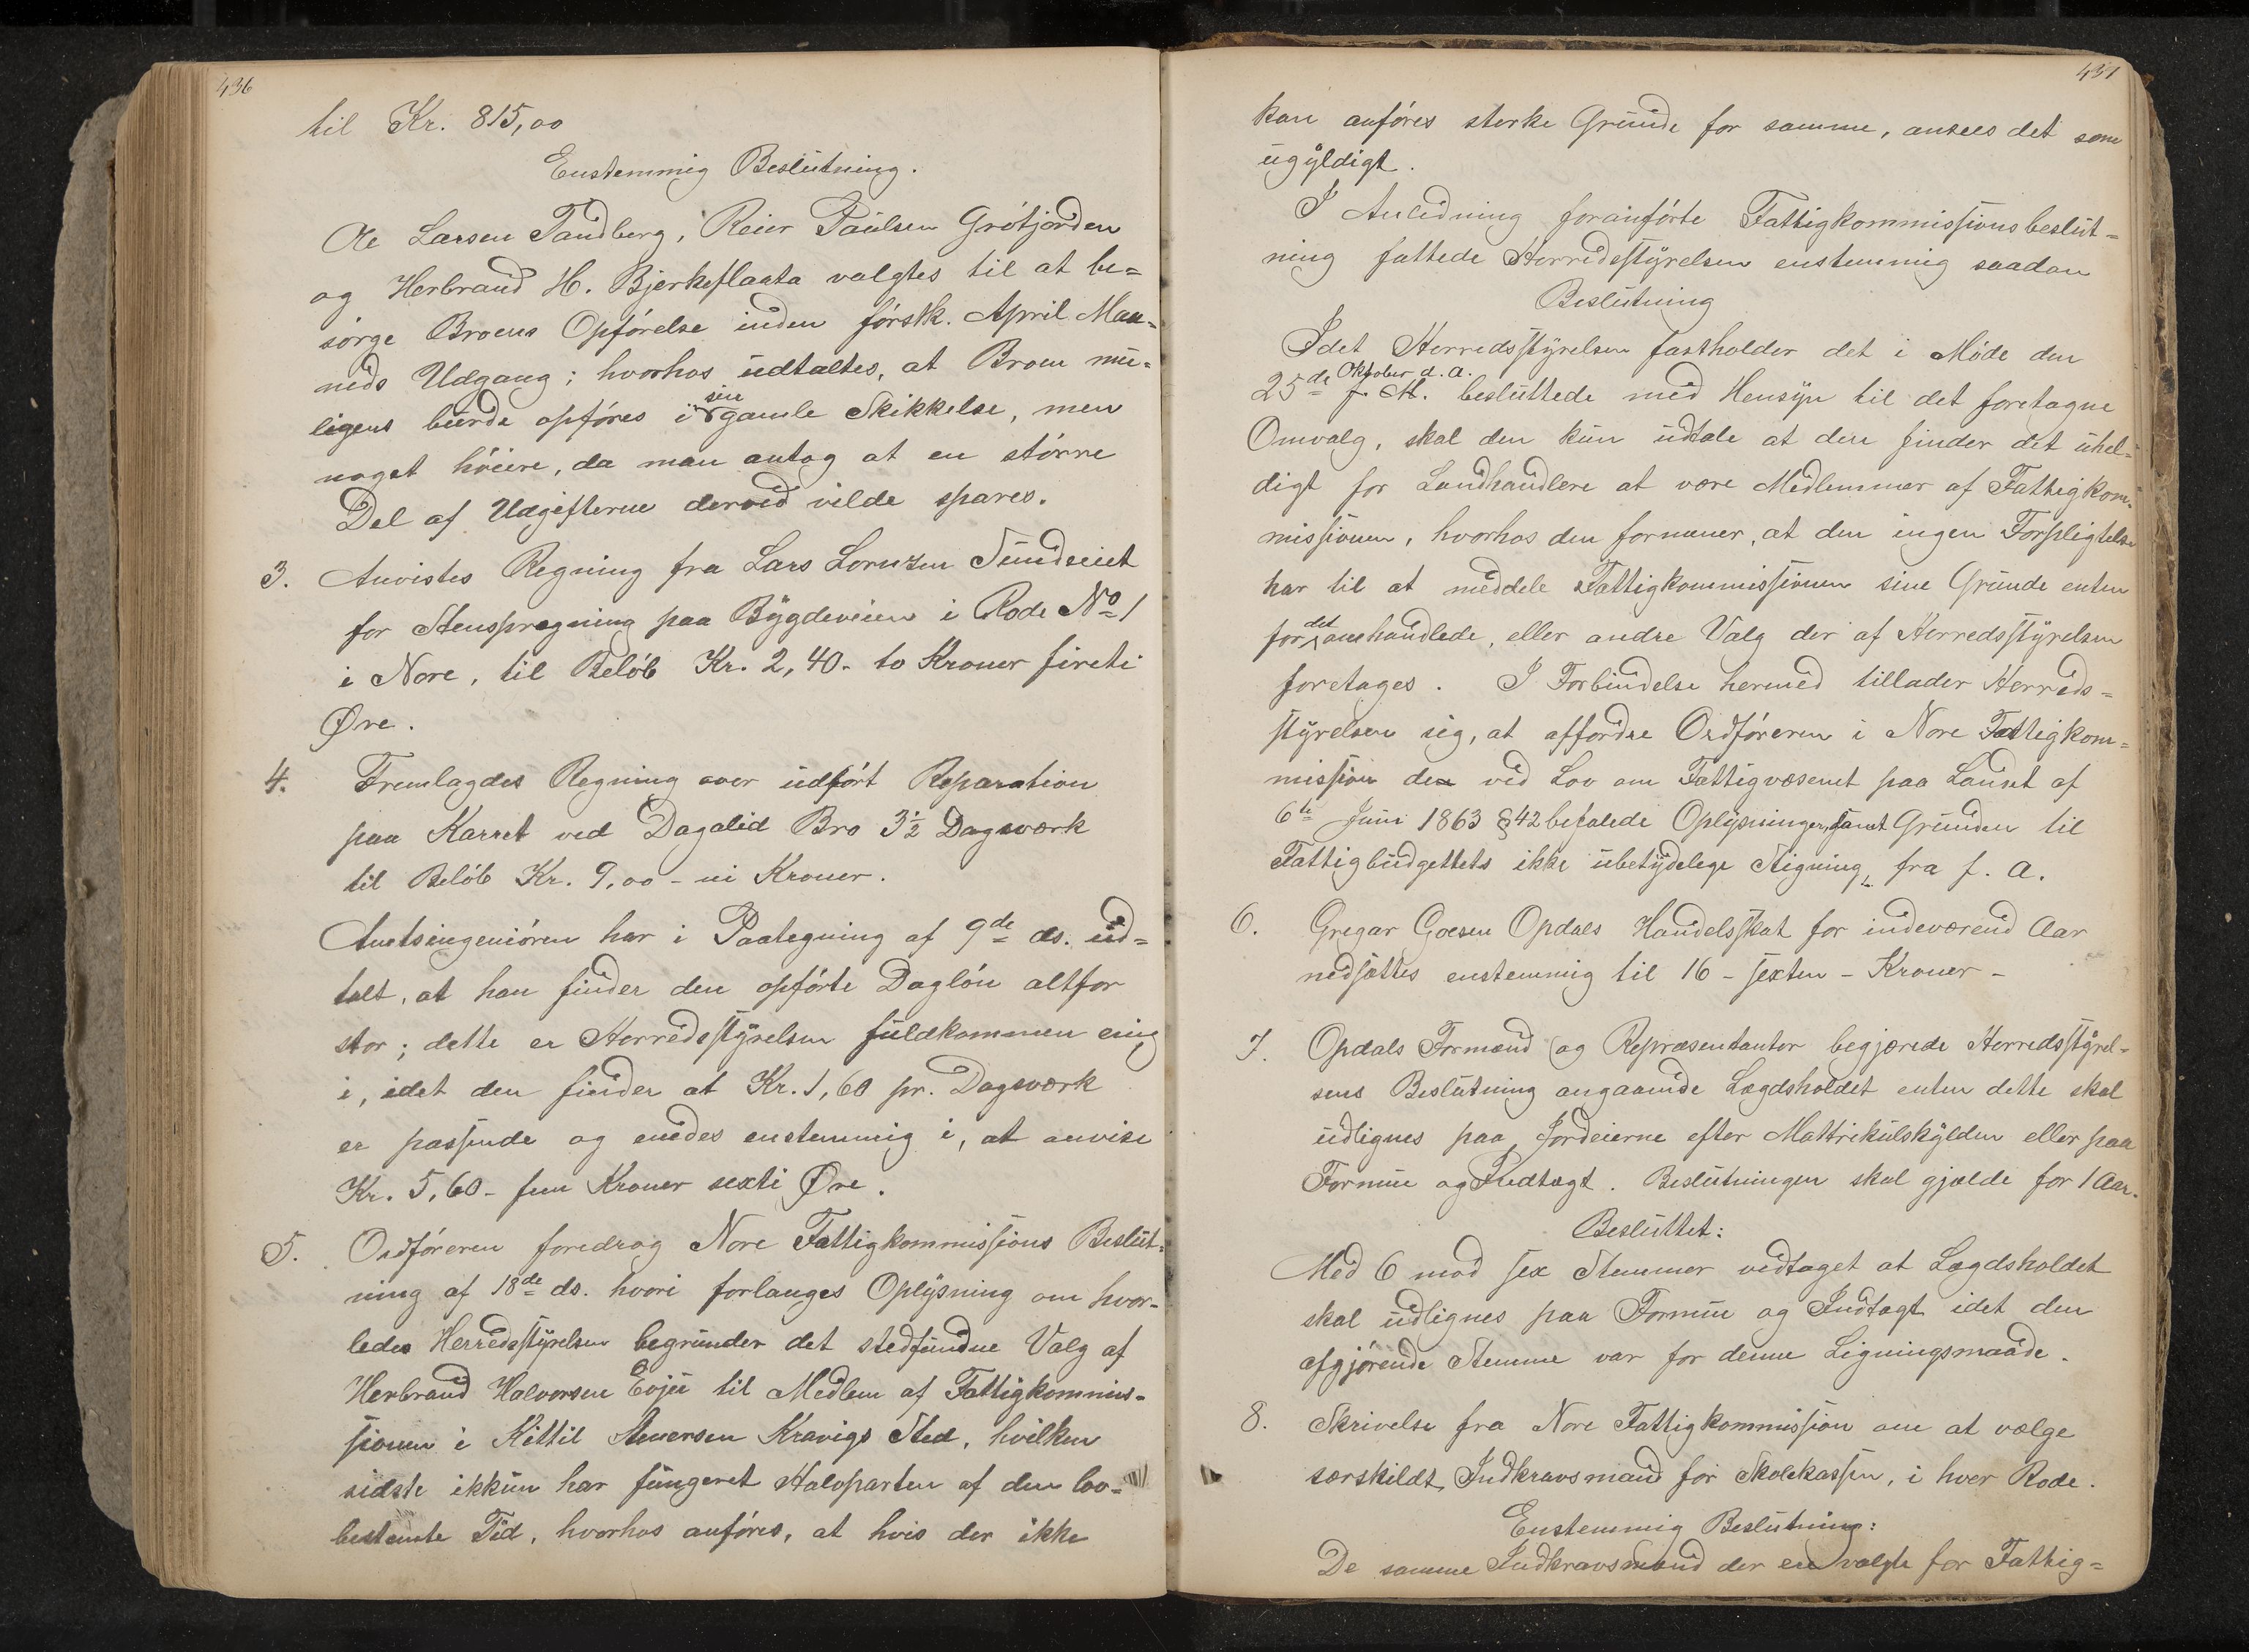 436
til Kr. 815,00
Enstemmig Beslutning.
Ole Larsen Tandberg, Reier Paulsen Grótjorden
og Herbrand H. Bjerkeflaata valgtes til at be=
sørge Broens Opførelse inden førstk. April Maa=
neds Udgang; hvorhos udtaltes, at Broen mu=
ligens burde opføres i sin gamle Skikkelse, men
noget høiere, da man antog at en større
Del af Udgifterne derved vilde spares.
3. Anvistes Regning fra Lars Lornzen Sundeiet
for Stensprægning paa Bygdeveien i Rode No 1
i Nore, til Beløb Kr. 2,40 - to Kroner fireti
Øre.
4. Fremlagdes Regning over udført Reparation
paa Karret ved Dagalid Bro 3½ Dagsværk
til Beløb Kr. 9,00 - ni Kroner.
Amtsingeniøren har i Paategning af 9de ds. ud=
talt, at han finder den opførte Dagløn altfor
stor; dette er Herredsstyrelsen fuldkommen enig
i, idet den finder at Kr. 1,60 pr. Dagsværk
er passende og enedes enstemmig i, at anvise
Kr. 5,60 - fem Kroner sexti Øre.
5. Ordføreren foredrog Nore Fattigkommissions Beslut=
ning af 18de ds. hvori forlanges Oplysning om hvor=
ledes Herredsstyrelsen begrunder det stedfundne Valg af
Herbrand Halvorsen Evju til Medlem af Fattigkommis=
sionen i Kittil Amersen Kravigs Sted, hvilken
sidste ikkun har fungeret Halvparten af den lov=
bestemte Tid, hvorhos anføres, at hvis der ikke
437
kan anføres sterke Grunde for samme, ansees det som
ugyldigt.
I Anledning foranførte Fattigkommissionsbeslut=
ning fattede Herredsstyrelsen enstemmig saadan
Beslutning
Idet Herredsstyrelsen fastholder det i Møde den
25de Oktober d. A. f. M. besluttede med Hensyn til det foretagne
Omvalg, skal den kun udtale at den finder det uhel=
digt for Landhandlere at være Medlemmer af Fattigkom=
missionen, hvorhos den formener, at den ingen Forpligtelse
har til at meddele Fattigkommissionen sine Grunde enten
for det omhandlede, eller andre Valg der af Herredsstyrelsen
foretages. I Forbindelse hermed tillader Herreds=
styrelsen sig, at affordre Ordføreren i Nore Fattigkom=
mission de ved Lov om Fattigvæsenet paa Landet af
6te Juni 1863 § 42 befalede Oplysninger, samt Grunden til
Fattigbudgettets ikke ubetydelige Stigning, fra f. A.
6. Gregar Goesen Opdals Handelsskat for indeværend Aar
nedsættes enstemmig til 16 - sexten - Kroner -
7. Opdals Formænd og Repræsentanter begjærede Herredsstyrel=
sens Beslutning angaaende Lægdsholdet enten dette skal
udlignes paa Jordeierne efter Mattrikulskylden eller paa
Formue og Indtægt. Beslutningen skal gjælde for 1 Aar.
Besluttet:
Med 6 mod sex Stemmer vedtaget at Lægdsholdet
skal udlignes paa Formue og Indtægt idet den
afgjørende Stemme var for denne Ligningsmaade.
8. Skrivelse fra Nore Fattigkommission om at vælge
særskildt Indkravsmand for Skolekassen, i hver Rode.
Enstemmig Beslutning:
De samme Indkravsmænd der ere valgte for Fattig=